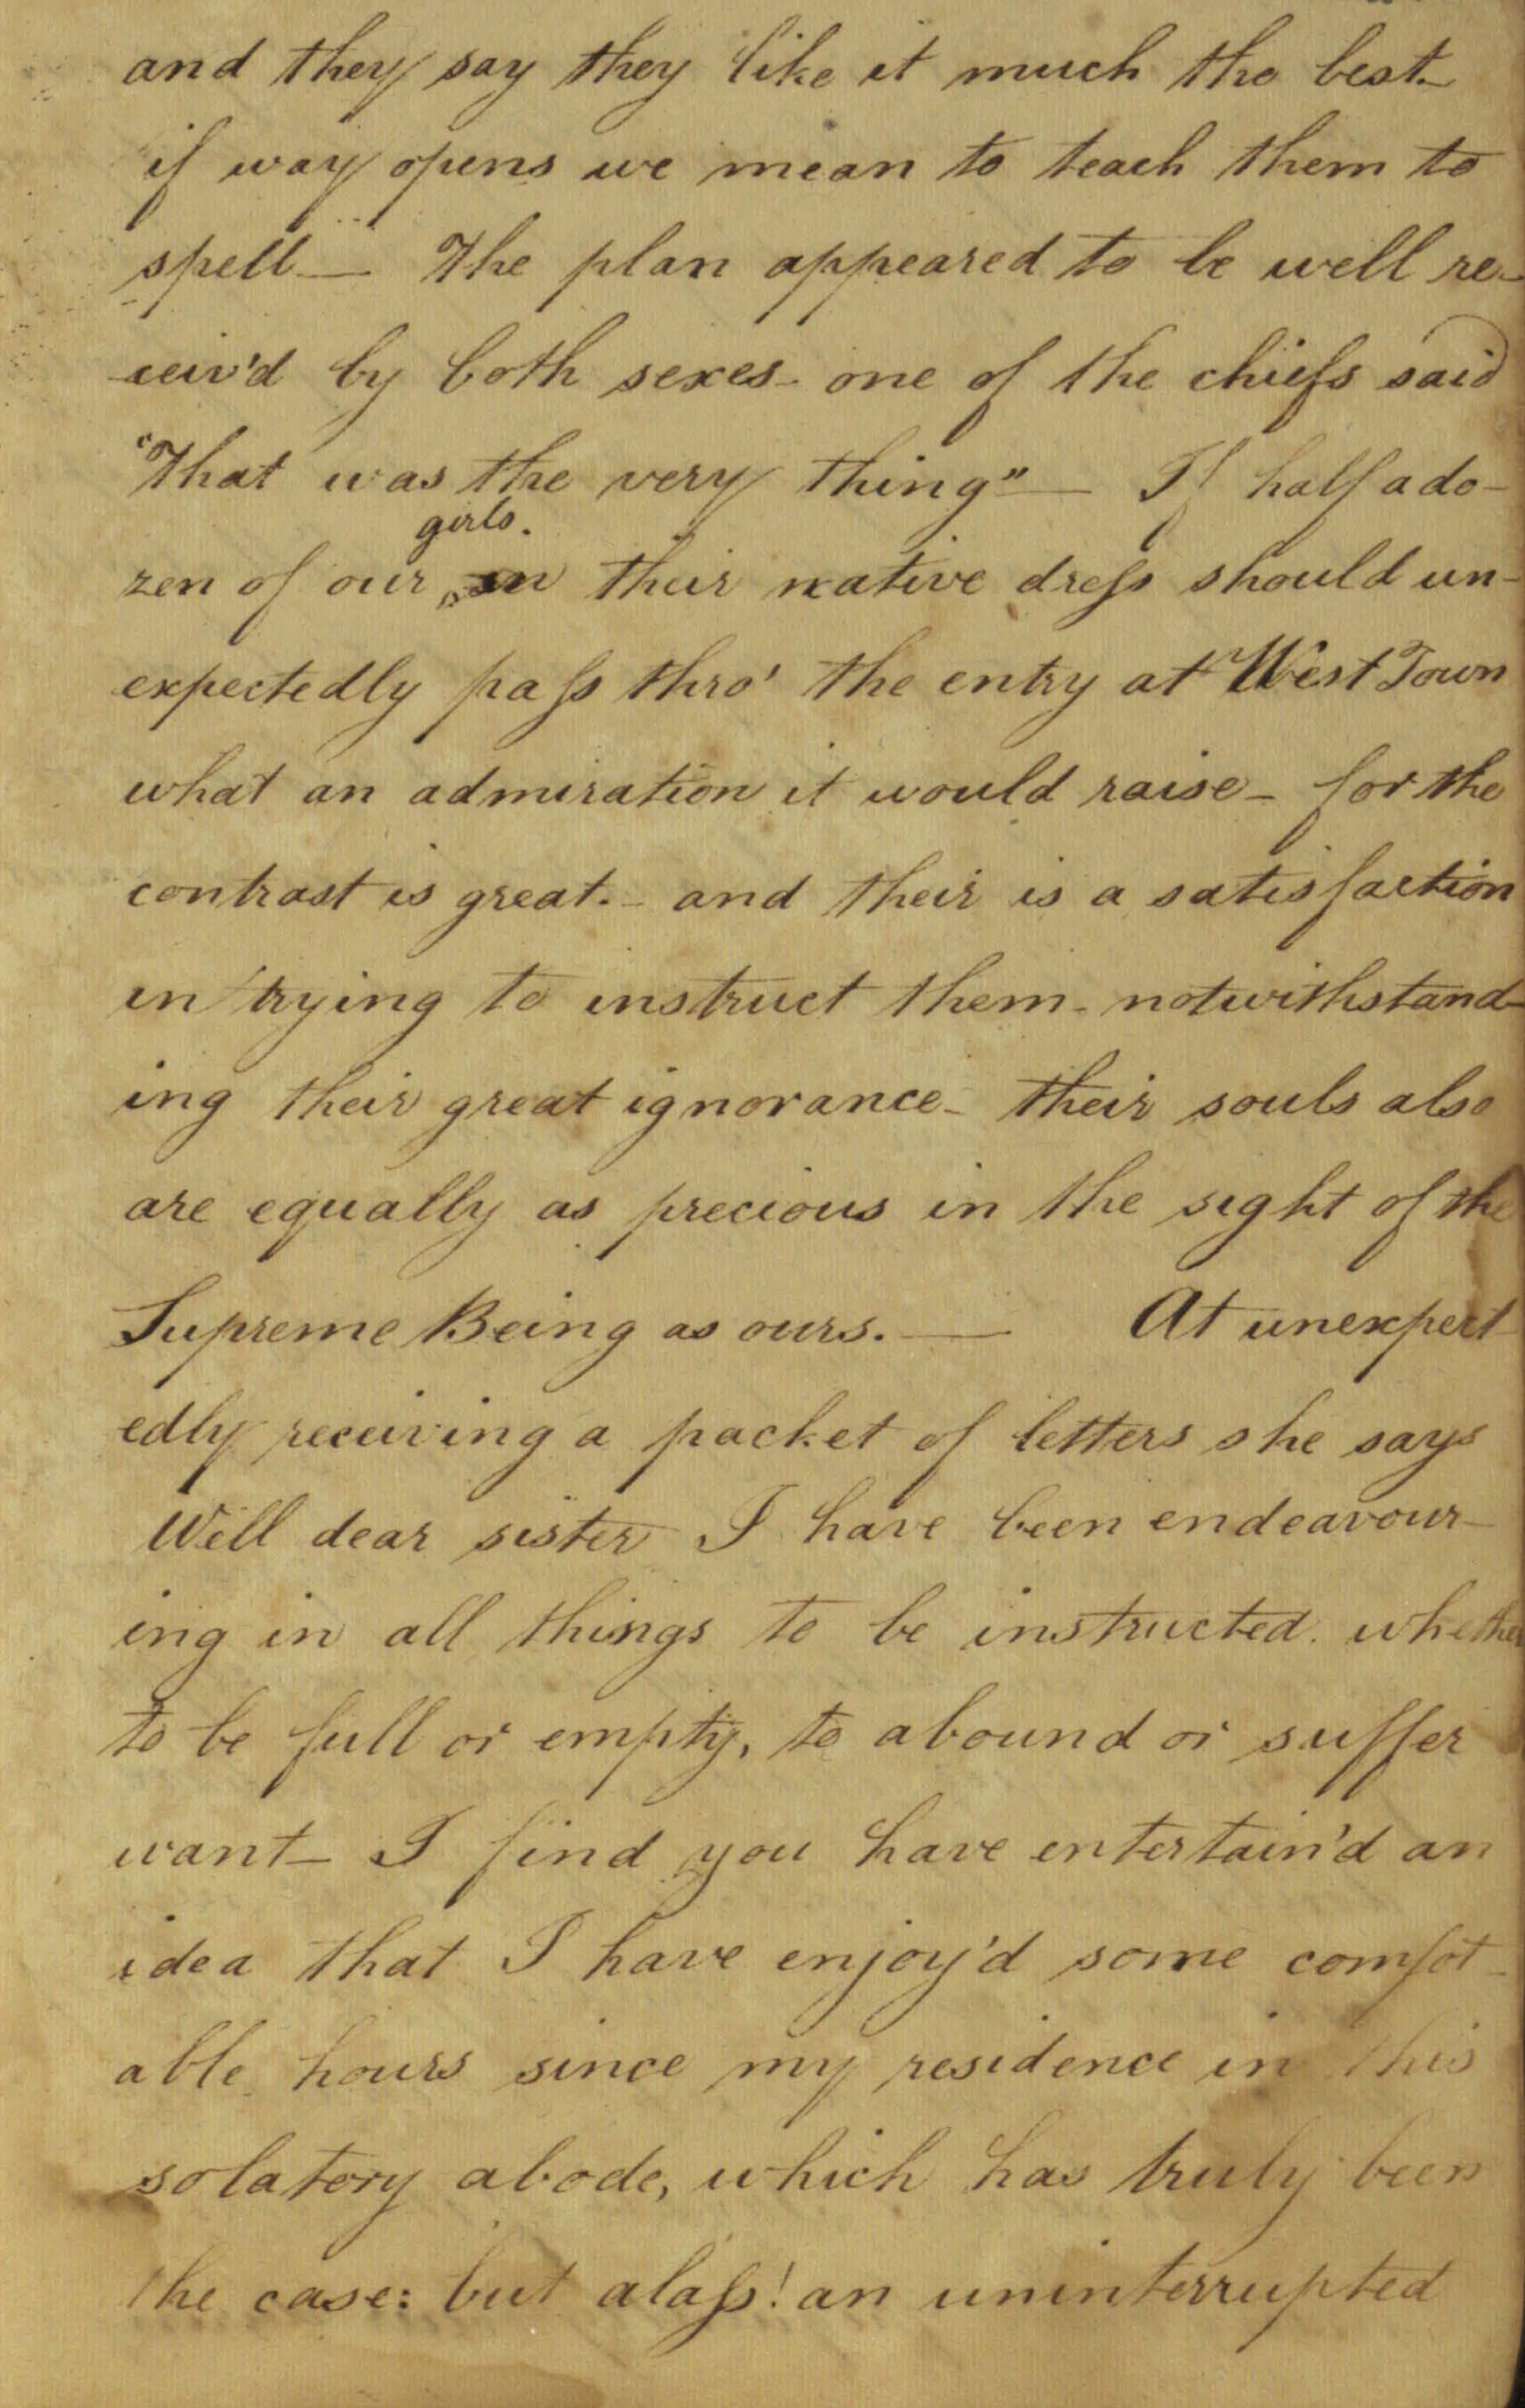 and they say they like it much the best_
if way opens we mean to teach them to
spell — The plan appeared to be well re-
ceiv'd by both sexes- one of the chiefs said
"That was the very thing" — If half a do-
girls.
zen of our ^ in their native dress should un-
expectedly pass thro' the entry at West Town
what an admiration it would raise_ for the
contrast is great._ and their is a satisfaction
in trying to instruct them_ notwithstand-
ing their great ignorance_ their souls also
are equally as precious in the sight of the
Supreme Being as ours. — At unexpect-
edly receiving a packet of letters she says
Well dear sister I have been endeavour-
ing in all things to be instructed. whether
to be full or empty, to abound or suffer
want_ I find you have entertain'd an
idea that I have enjoy'd some comfot-
able hours since my residence in this
solatory abode, which has truly been
the case: but alass! an uninterrupted